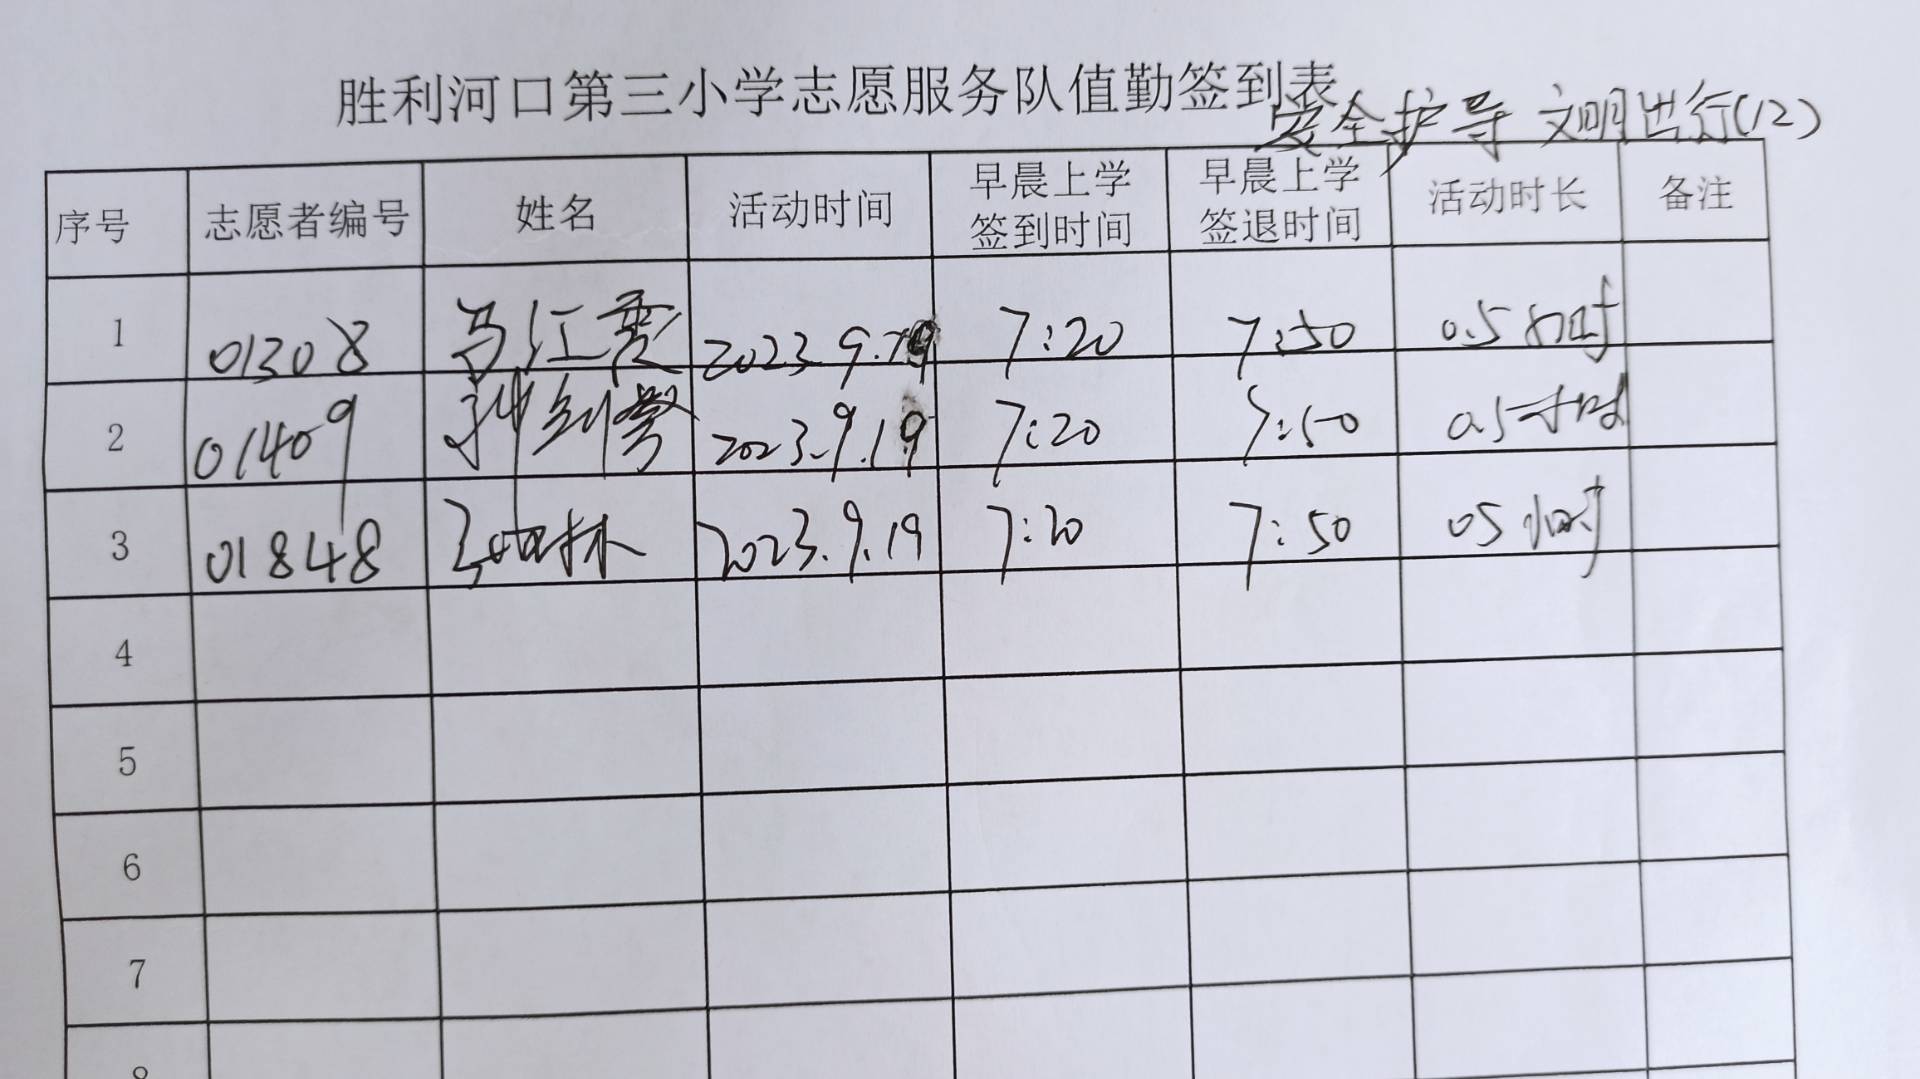 胜利河口第三小学志愿服务队值勤签到表
安全护导 文明出行(12)
序号 志愿者编号 姓名 活动时间 早晨上学签到时间 早晨上学签退时间 活动时长 备注
1 01308 马江霞 2023.9.19 7:20 7:50 0.5小时
2 01409 2023.9.19 7:20 7:50 0.5小时
3 01848 2023.9.19 7:20 7:50 05小时
4
5
6
7
8